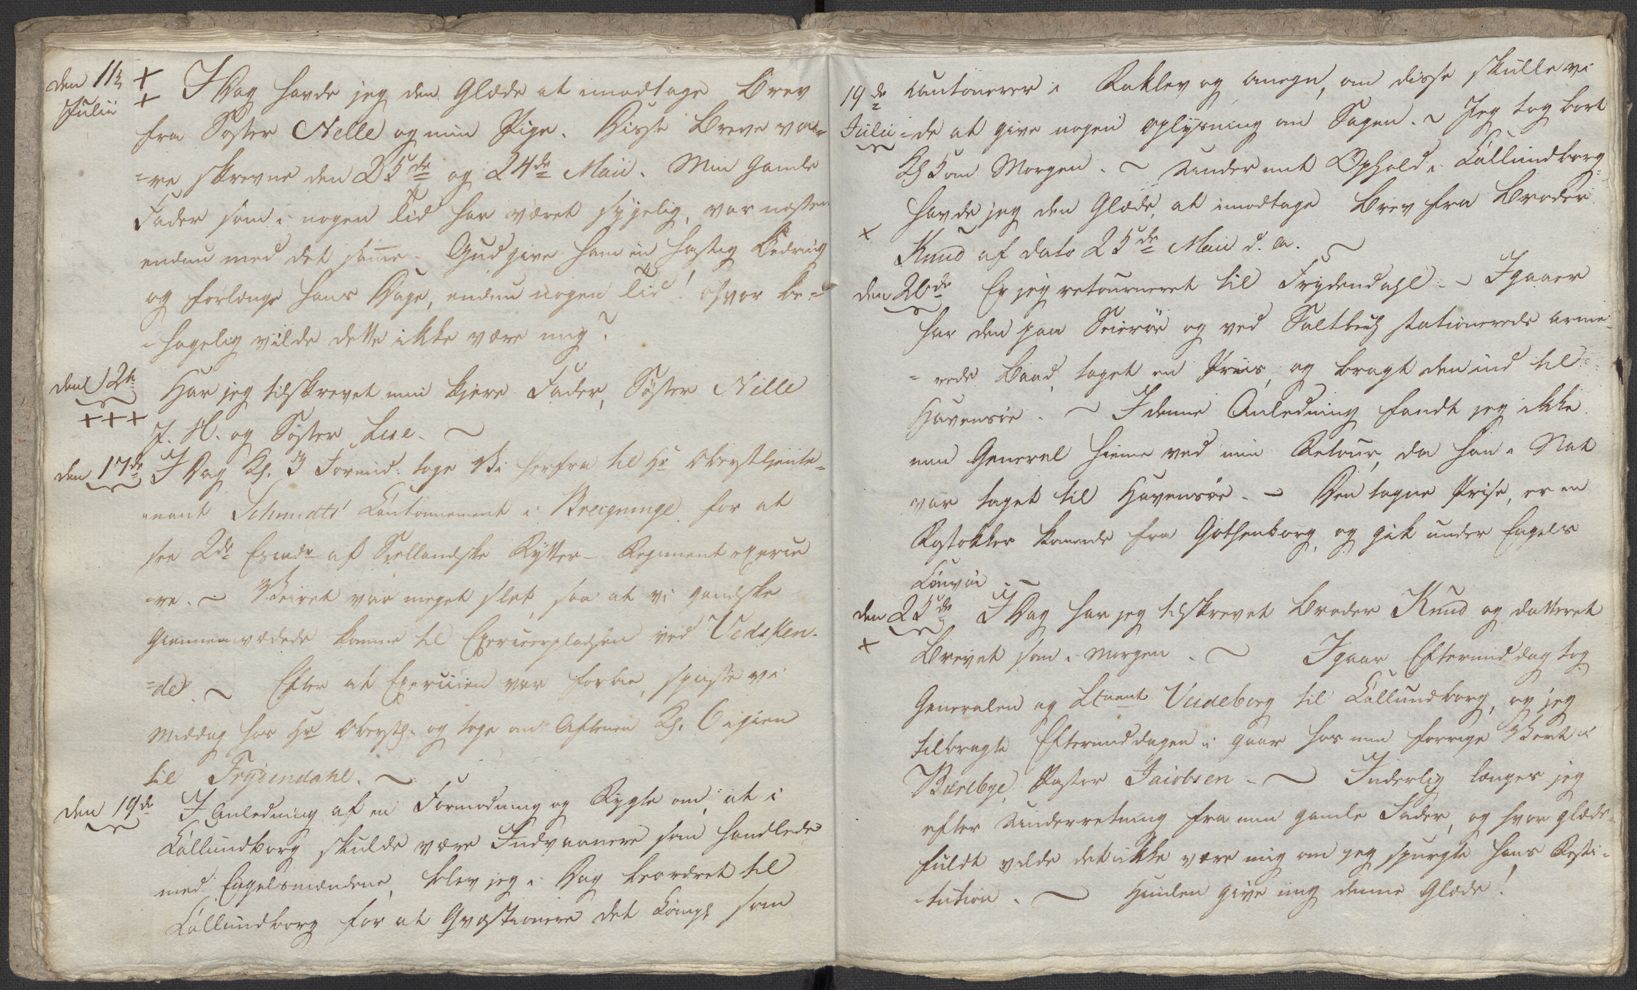 den 11te + I Dag havde jeg den Glæde at imodtage Brev
Julii + fra Søster Nelle og min Pige. Disse Breve va-
-re skrevne den 25de og 24de Maii. Min gamle
Fader som i nogen Tid har været sygelig, var næsten
endnu med det samme. Gud give ham en hastig Bedring
og forlænge hans Dage, endnu nogen Tid! Hvor be-
-hagelig vilde dette ikke være mig?
den 12te Har jeg tilskrevet min kjere Fader, Søster Nille
+++ J. H. og Søster Lise. ~
den 17de I Dag Kl. 3 Formid. toge Vi herfra til Hr Obrystlieute-
-nant Schmidts Cantonnement i Bregninge for at
see 2de af Siellandske Rytter-Regiment exerce-
-re. ~ Veiret var meget slet, saa at vi gandske
giennemvædede komme til Exerceerpladsen ved Vidsken-
-de. ~ Efter at Exercicen var forbie, spiste vi
Middag hos Hr Obrystl. og toge om Aftenen Kl. igien
til Frydendahl. ~
den 19de I Anledning af en Formodning og Rygte om, at i
Callundborg skulde være Indvaanere som handlede
med Engelsmændene, blev jeg i Dag beordret til
Callundborg for at Qvæstionere det Comp. som
19de cantonerer i Raklev og omegn, om disse skulle vi-
Julii -de at give nogen oplysning om Sagen. ~ Jeg tog bort
Kl. 5 om Morgen. ~ Under mit Ophold i Callundborg
havde jeg den Glæde, at imodtage Brev fra Broder
+ Knud af dato 25de Maii d. a. ~
den 20de Er jeg retourneret til Frydendahl. ~ Igaaer
har den paa Seierøe og ved Saltbek stationerede arme-
-rede Baad, taget en Priis, og bragt den ind til
Havensøe. ~ I denne Anledning fandt jeg ikke
min General hieme ved min Retour, da han i Nat
var taget til Havensøe. ~ Den tagne Prise, er en
Rostokker kommende fra Gothenborg, og gik under Engels
Convoi
den 25de I Dag har jeg tilskrevet Broder Knud og datteret
+ Brevet som i Morgen. ~ Igaar Eftermiddag tog
Generalen og Ltnant Vindeborg til Callundborg, og jeg
tilbragte Eftermiddagen i gaar hos min forrige Vert i
Bierebye, Pastor Jacobsen. ~ Inderlig længes jeg
efter Underretning fra min gamle Fader, og hvor glæde-
fuldt vilde det ikke være mig om jeg spurgte hans Resti-
-tution. ~ Himlen give mig denne Glæde!